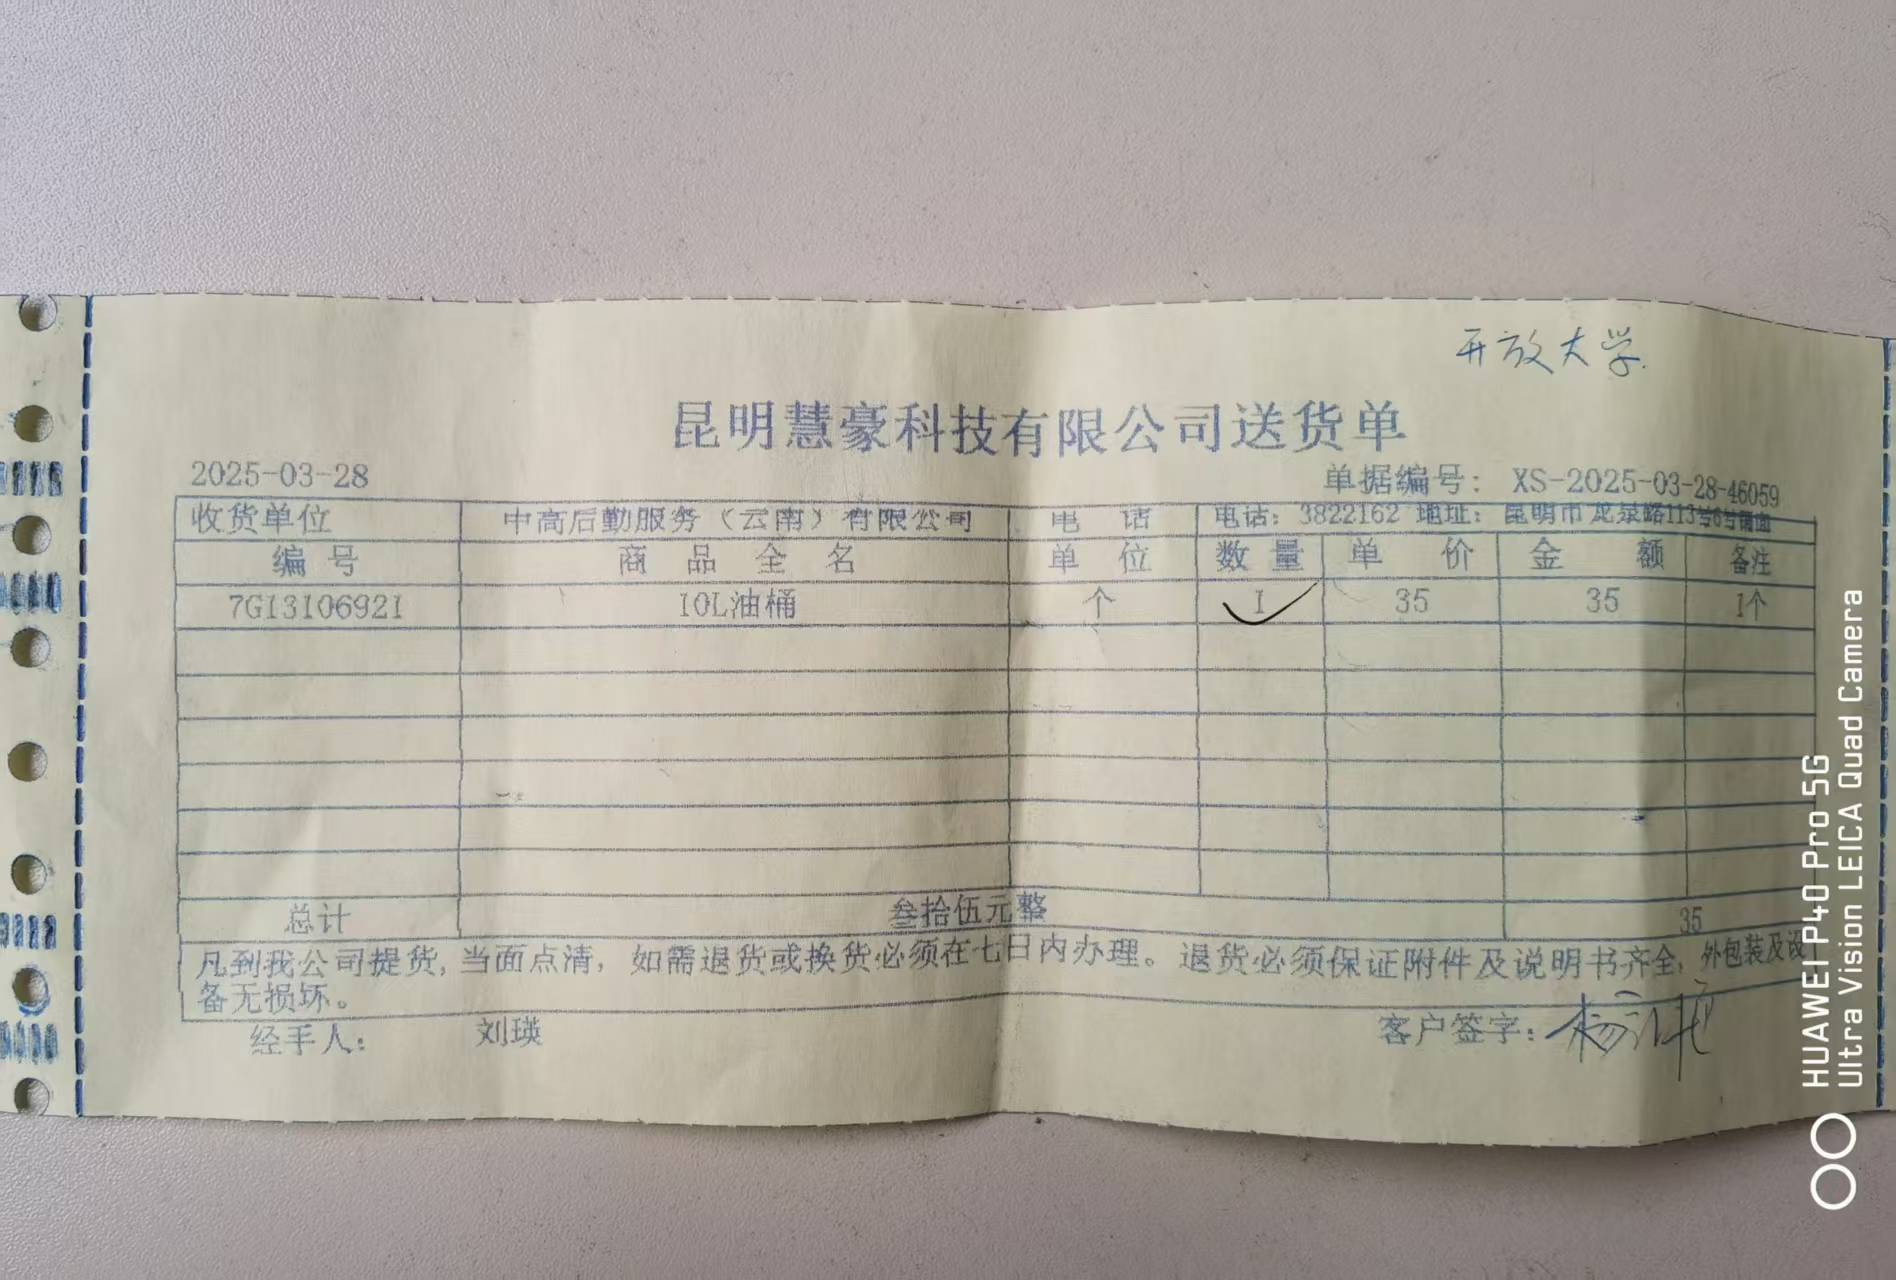 开放大学
昆明慧豪科技有限公司送货单
2025-03-28 单据编号: XS-2025-03-28-46059
收货单位 中高后勤服务（云南）有限公司 电 话 电话: 3822162 地址: 昆明市龙泉路113号6号铺面
编 号 商 品 全 名 单 位 数 量 单 价 金 额 备注
7G13106921 10L油桶 个 1 35 35 1个
总计 叁拾伍元整 35
凡到我公司提货, 当面点清, 如需退货或换货必须在七日内办理。退货必须保证附件及说明书齐全, 外包装及设
备无损坏。
经手人: 刘瑛 客户签字:
HUAWEI P40 Pro 5G
Ultra Vision LEICA Quad Camera